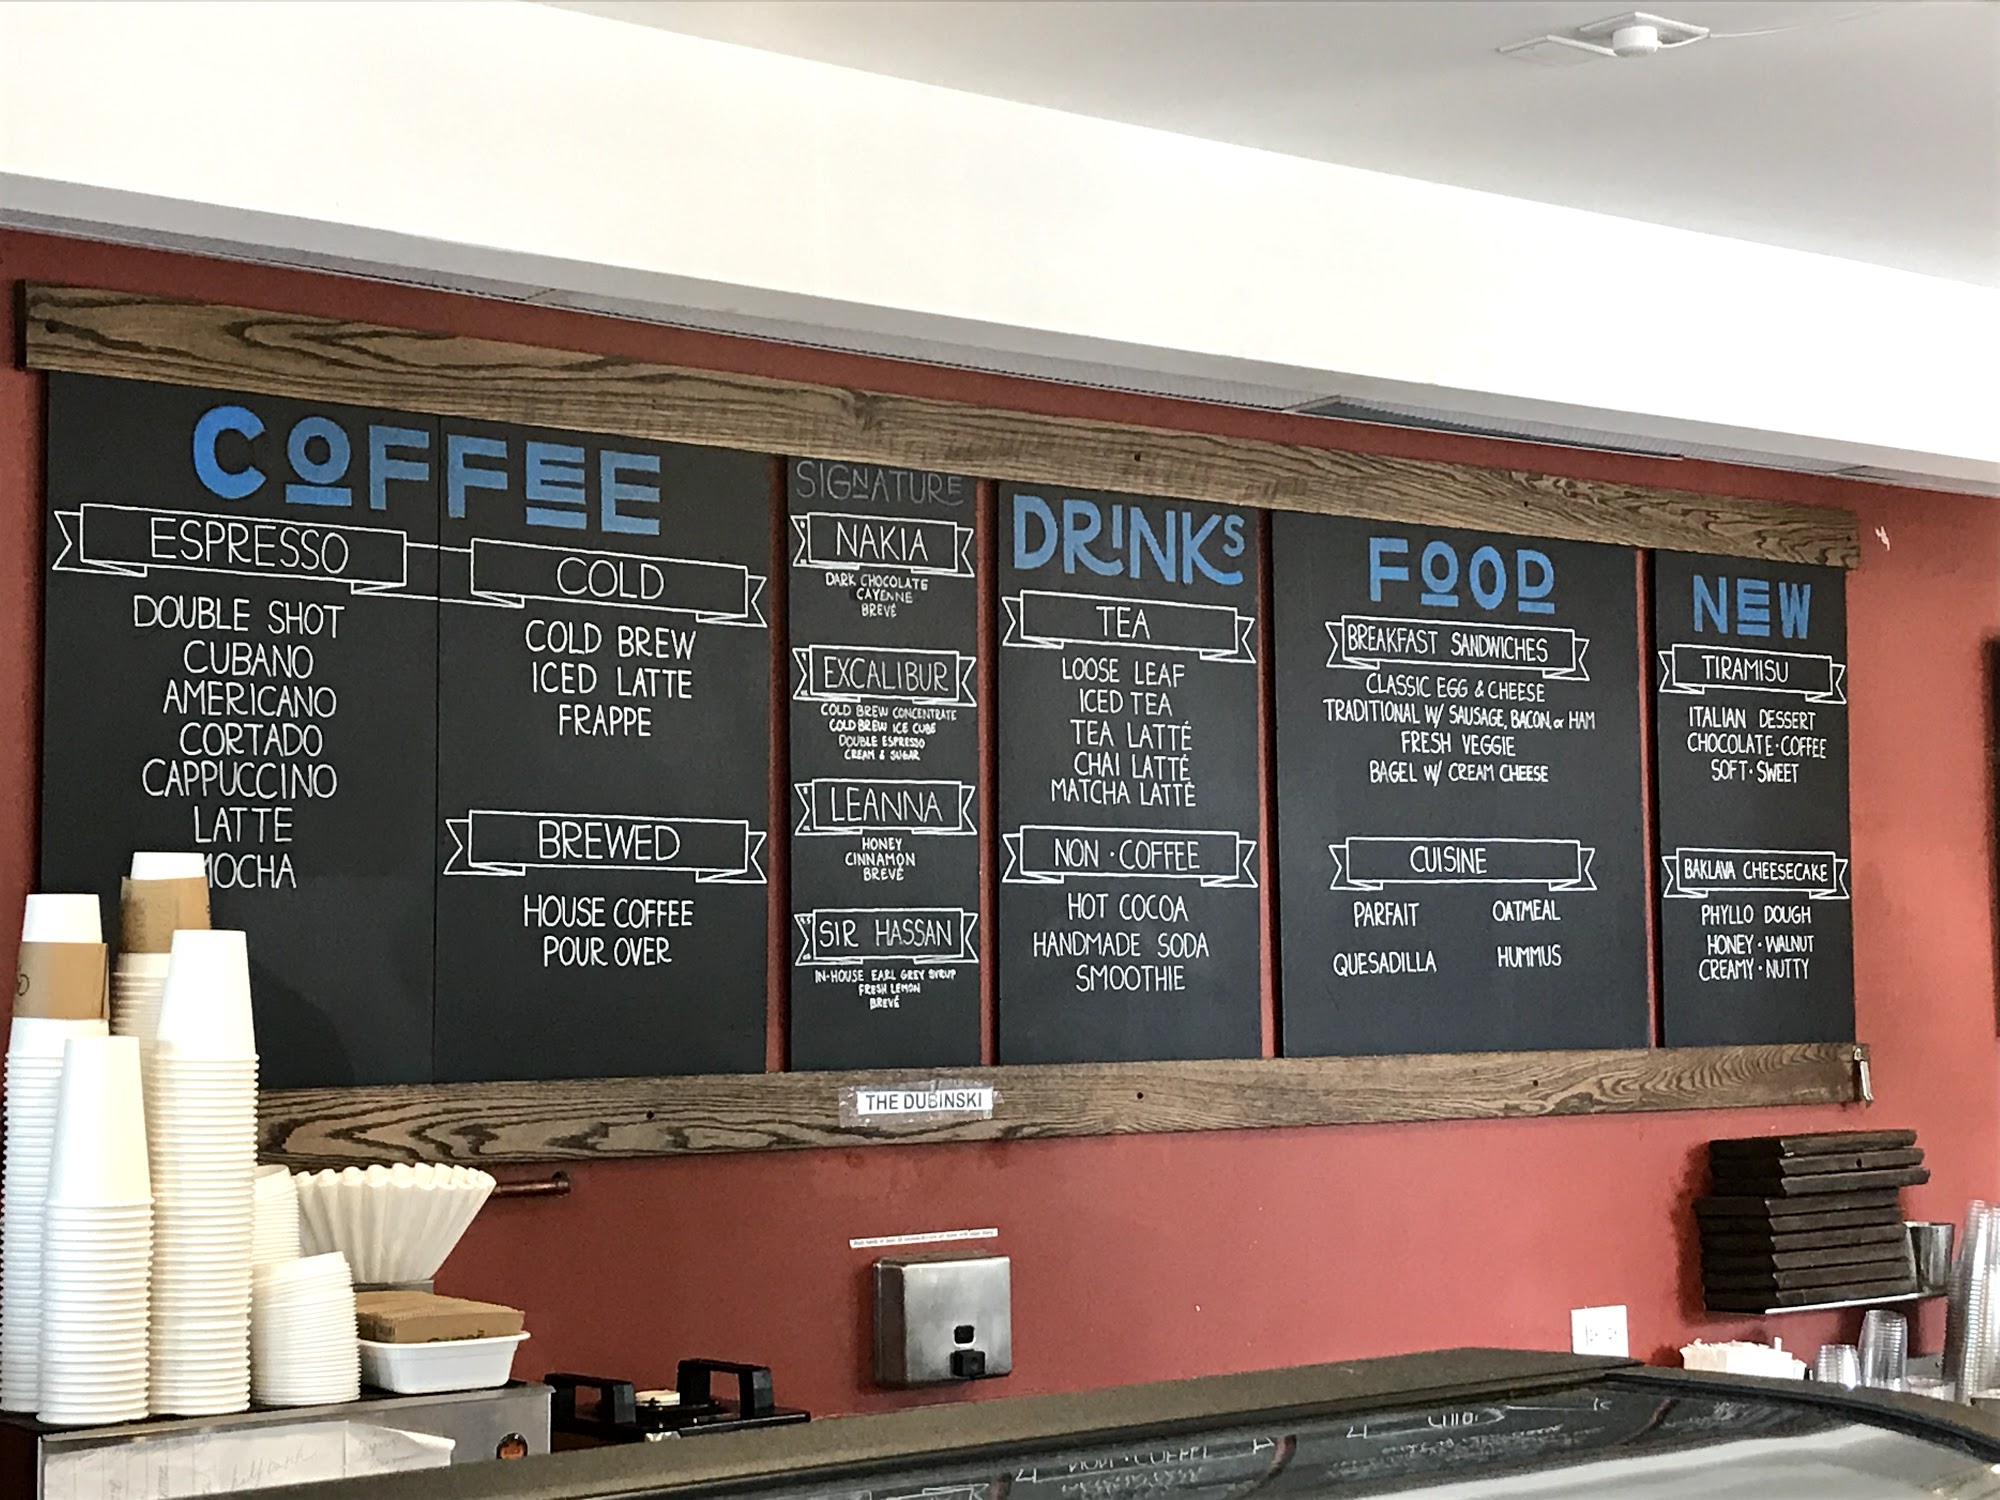 COFFEE
ESPRESSO
DOUBLE SHOT
CUBANO
AMERICANO
CORTADO
CAPPUCCINO
LATTE
MOCHA
COLD
COLD BREW
ICED LATTE
FRAPPE
BREWED
HOUSE COFFEE
POUR OVER
SIGNATURE
NAKIA
DARK CHOCOLATE
CAYENNE
BREVÉ
EXCALIBUR
COLD BREW CONCENTRATE
COLD BREW ICE CUBE
DOUBLE ESPRESSO
CREAM & SUGAR
LEANNA
HONEY
CINNAMON
BREVÉ
SIR HASSAN
IN-HOUSE EARL GREY SYRUP
FRESH LEMON
BREVÉ
DRINKS
TEA
LOOSE LEAF
ICED TEA
TEA LATTÉ
CHAI LATTÉ
MATCHA LATTÉ
NON · COFFEE
HOT COCOA
HANDMADE SODA
SMOOTHIE
FOOD
BREAKFAST SANDWICHES
CLASSIC EGG & CHEESE
TRADITIONAL W/ SAUSAGE, BACON, or HAM
FRESH VEGGIE
BAGEL W/ CREAM CHEESE
CUISINE
PARFAIT OATMEAL
QUESADILLA HUMMUS
NEW
TIRAMISU
ITALIAN DESSERT
CHOCOLATE · COFFEE
SOFT · SWEET
BAKLAVA CHEESECAKE
PHYLLO DOUGH
HONEY · WALNUT
CREAMY · NUTTY
THE DUBINSKI